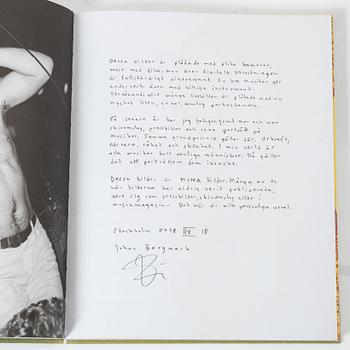 Dessa bilder är plåtade med olika kameror,
mest med film, men även digitala. Utrustningen
är fullständigt ointressant. En bra musiker gör
underverk även med billiga instrument.
många livebilder är plåtade med en
mycket liten, enkel, analog pocketkamera.
På senare år har jag fotograferat mer och mer
skivomslag, pressbilder och rena porträtt på
musiker. Samma grundprincip gäller där. Urkraft,
närvaro, råhet och skönhet. I min värld är
alla musiker helt vanliga människor. Då gäller
det att porträttera dem ikoniskt.
Dessa bilder är MINA bilder. Många av de
här bilderna har aldrig varit publicerade,
vare sig som pressbilder, skivomslag eller i
musikmagasin. Det här är mitt personliga urval.
Stockholm 18
Johan Bergmark